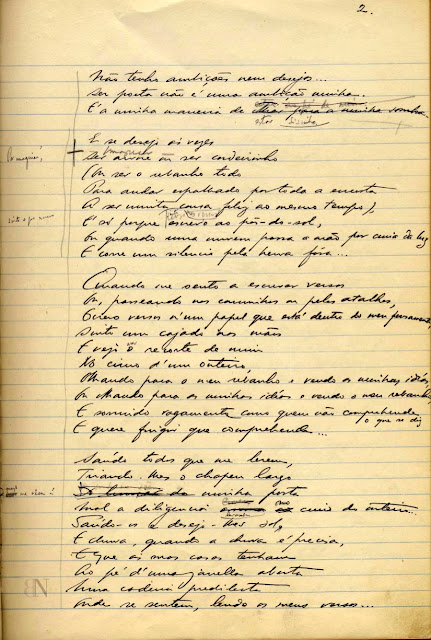 2.
Não tenho ambições nem desejos...
Ser poeta não é uma ambição minha.
É a minha maneira de
estar sósinho
E se desejo ás vezes
Ser cordeirinho
(Ou ser o rebanho todo
Para andar espalhado por toda a encosta
A ser muita cousa feliz ao mesmo tempo),
É só porque sinto o que escrevo ao pôr-do-sol,
Ou quando uma nuvem passa a mão por cima da luz
E corre um silencio pela herva fóra...
Quando me sento a escrever versos
Ou, passeando nos caminhos ou pelos atalhos,
Escrevo versos n'um papel que está dentro do meu pensamento,
Sinto um cajado nas mãos
E vejo um recorte de mim
No cimo d'um outeiro,
Olhando para o meu rebanho e vendo as minhas idéas,
Ou olhando para as minhas idéas e vendo o meu rebanho
E sorrindo vagamente como quem não comprehende
o que se diz
E quere fingir que comprehende...
Saúdo todos que me lerem,
Tirando-lhes o chapeu largo
da minha porta
Mal a diligencia no cimo do outeiro...
Saúdo-os e desejo-lhes sol,
E chuva, quando a chuva é precisa,
E que as suas casas tenham
Ao pé d'uma janella aberta
Uma cadeira predilecta
Onde se sentem, lendo os meus versos...
BN